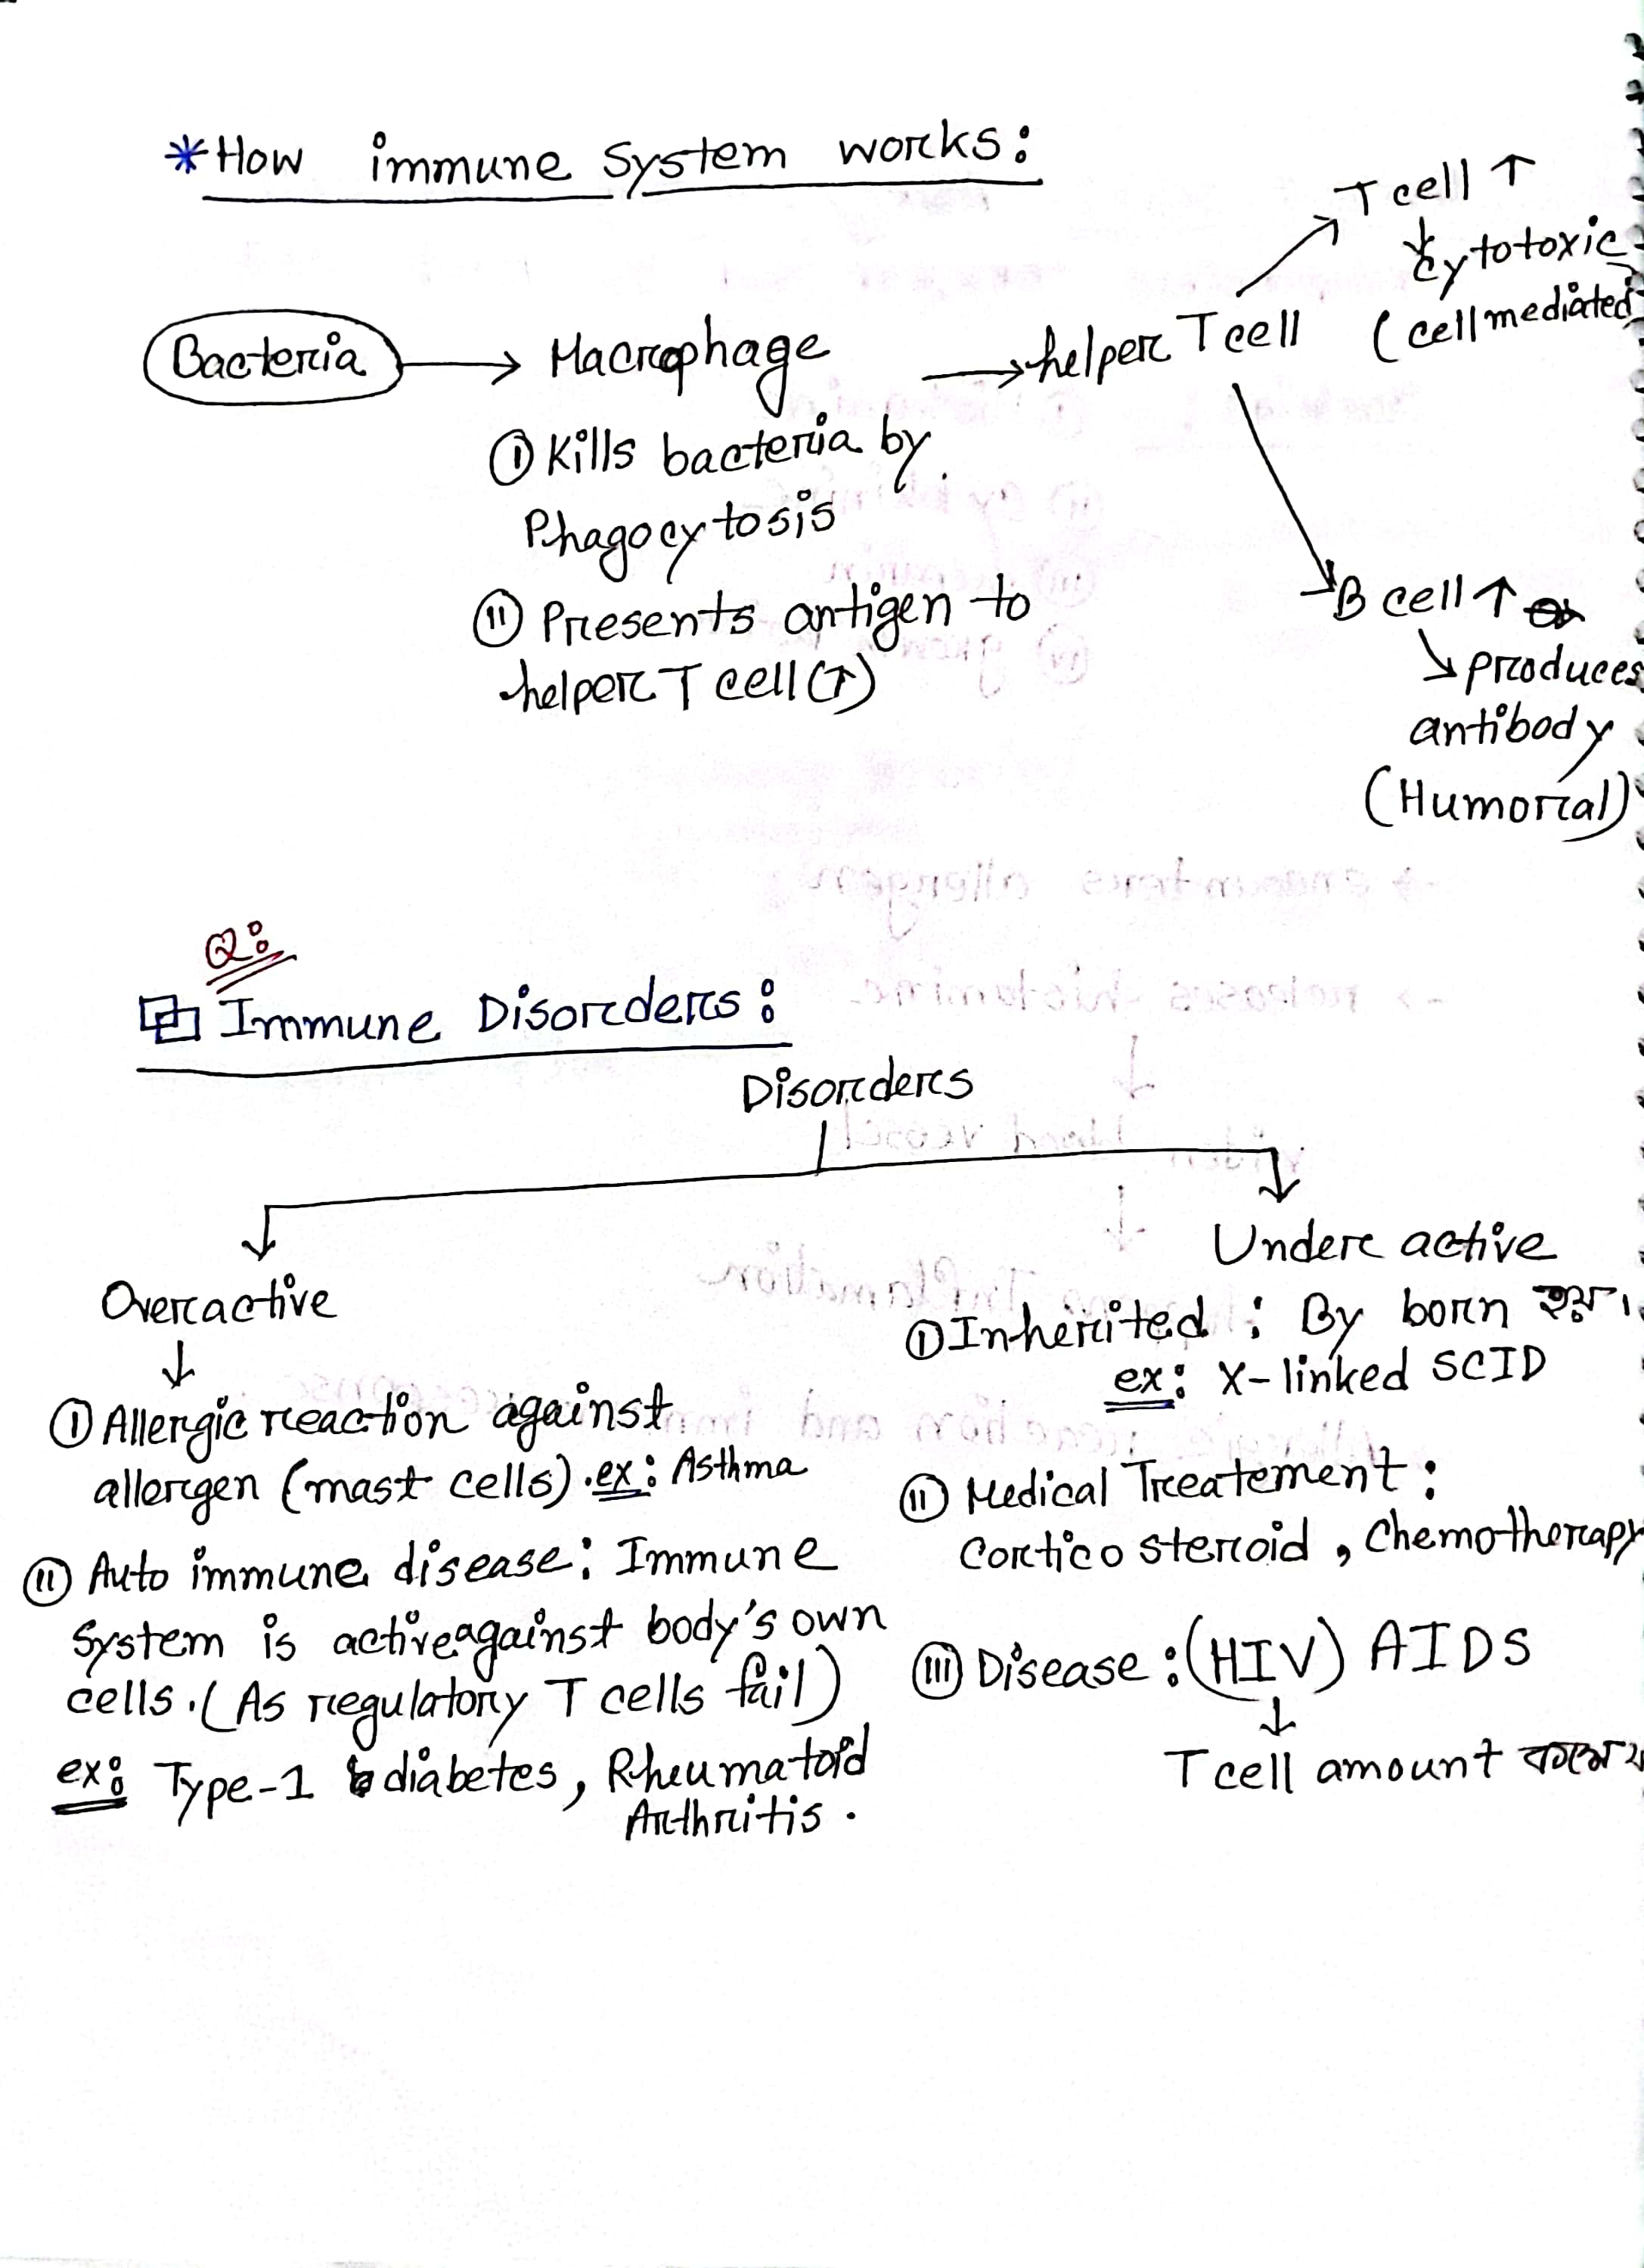 *How immune system works:
Bacteria → Macrophage → helper T cell
T cell ↑
cytotoxic
(cell mediated
① Kills bacteria by
Phagocytosis
② Presents antigen to
helper T cell (↑)
B cell ↑
↘ produces
antibody
(Humorial)
Q:
Immune Disorders:
Disorders
Overactive
↓
① Allergic reaction against
allergen (mast cells). ex: Asthma
② Auto immune disease: Immune
system is active against body's own
cells. (As regulatory T cells fail)
ex: Type-1 diabetes, Rheumatoid
Arthritis.
Under active
① Inherited : By born হয়।
ex: X-linked SCID
② Medical Treatement:
Cortico steroid, Chemotherapy
③ Disease: (HIV) AIDS
↓
T cell amount